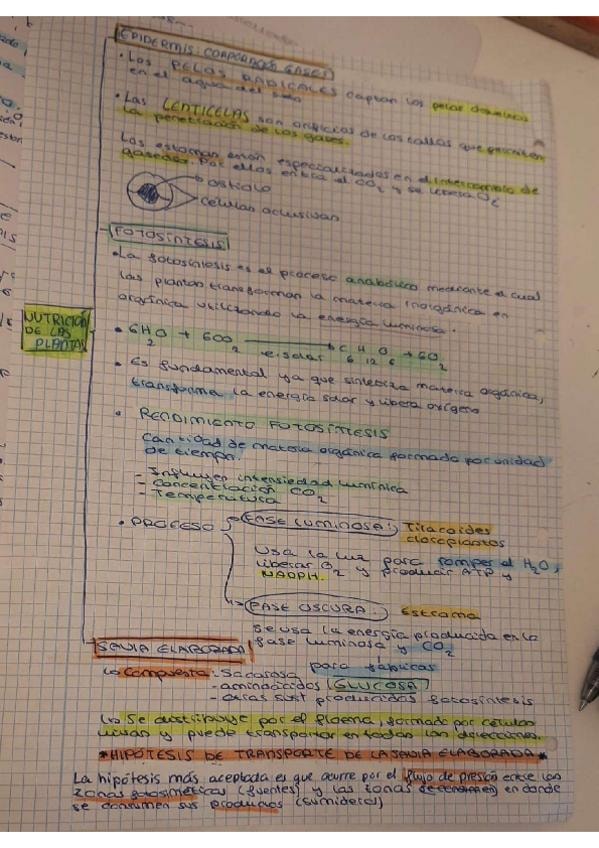 EPIDERMIS: CORPORACIÓN GASES
• Los PELOS RADICALES captan los gases disueltos
en el agua del suelo
• Las LENTICELAS son orificios de los tallos que permiten
la penetración de los gases.
Los estomas están especializados en el intercambio de
gaseoso. Por ellos entra el CO2 y se libera O2
ostiolo
células oclusivas
FOTOSÍNTESIS
• La fotosíntesis es el proceso anabólico mediante el cual
las plantas transforman la materia inorgánica en
orgánica utilizando la energía luminosa.
NUTRICIÓN
DE LAS
PLANTAS
• 6H2O + 6CO2 → C6H12O6 + 6O2
e. solar
• Es fundamental ya que sintetiza materia orgánica,
transforma la energía solar y libera oxígeno
• RENDIMIENTO FOTOSÍNTESIS
Cantidad de materia orgánica formada por unidad
de tiempo.
- Influyen intensiedad lumínica
- Concentración CO2
- Temperatura
• PROCESO
FASE LUMINOSA: Tilacoides
cloroplastos
Usa la luz para romper el H2O,
liberar O2 y producir ATP y
NADPH.
FASE OSCURA: Estroma
Se usa la energía producida en la
fase luminosa y CO2
para fabricar
GLUCOSA
SAVIA ELABORADA
Compuesta: - Sacarosa
- aminoácidos
- otras sust producidas fotosíntesis
Se distribuye por el floema, formado por células
vivas y puede transportar en todas las direcciones.
*HIPÓTESIS DE TRANSPORTE DE LA SAVIA ELABORADA*
La hipótesis más aceptada es que ocurre por el flujo de presión entre las
zonas fotosintéticas (fuentes) y las zonas en donde
se consumen sus productos (sumideros)